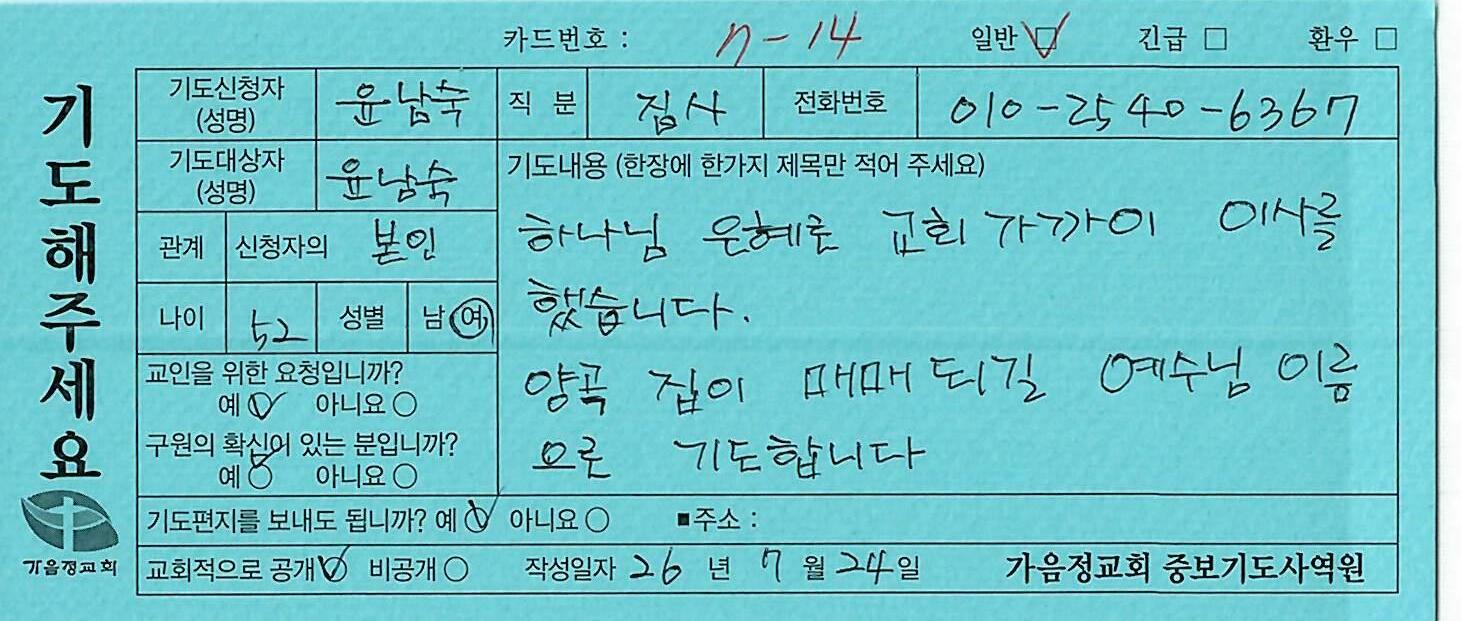 카드번호 : 7-14 일반 ☑ 긴급 □ 환우 □
기도해주세요
기도신청자 (성명) 윤남숙 직 분 집사 전화번호 010-2540-6367
기도대상자 (성명) 윤남숙
관계 신청자의 본인
나이 52 성별 남 여
교인을 위한 요청입니까?
예 아니요
구원의 확신이 있는 분입니까?
예 아니요
기도내용 (한장에 한가지 제목만 적어 주세요)
하나님 은혜로 교회 가까이 이사를
했습니다.
양곡 집이 매매 되길 예수님 이름
으로 기도합니다
기도편지를 보내도 됩니까? 예 아니요 ■주소 :
교회적으로 공개 비공개 작성일자 26 년 7 월 24 일 가음정교회 중보기도사역원
가음정교회